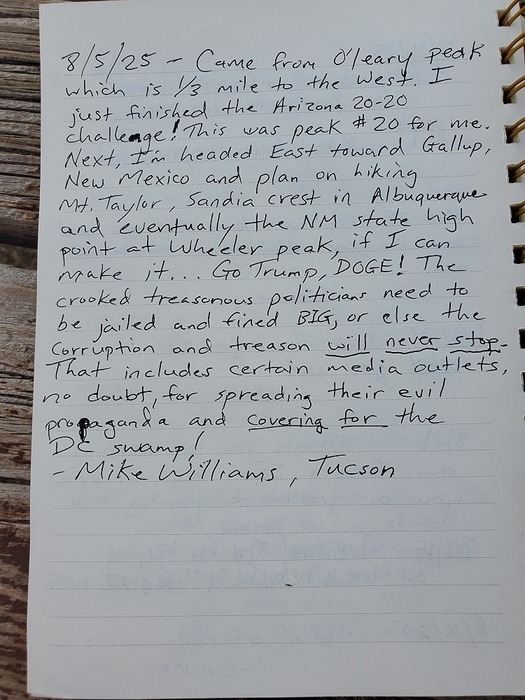 8/5/25 - Came from O'leary peak
which is 1/3 mile to the West. I
just finished the Arizona 20-20
challenge! This was peak #20 for me.
Next, I'm headed East toward Gallup,
New Mexico and plan on hiking
Mt. Taylor, Sandia crest in Albuquerque
and eventually the NM state high
point at Wheeler peak, if I can
make it... Go Trump, DOGE! The
crooked treasonous politicians need to
be jailed and fined BIG, or else the
corruption and treason will never stop.
That includes certain media outlets,
no doubt, for spreading their evil
propaganda and covering for the
DC swamp!
- Mike Williams, Tucson